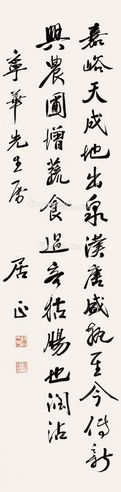 嘉峪天成地出泉漢唐咸孰至今傳新
興農圃增蔬食過客枯腸也潤沾
寧華先生屬
居正